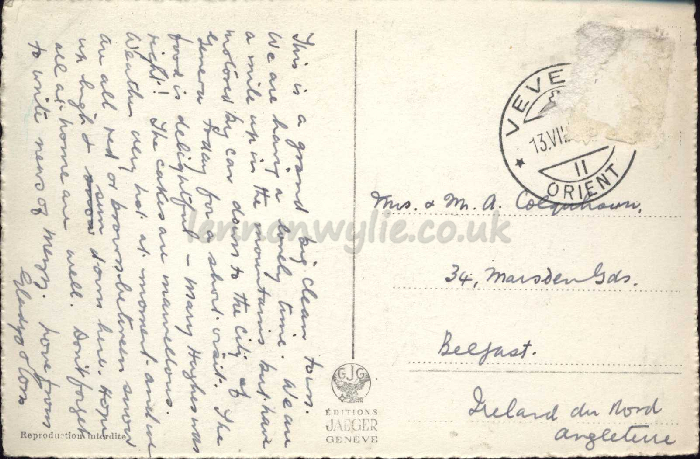 This is a grand big clean town.
We are having a lovely time. We are
a mile up in the mountains but have
motored by car down to the city of
Geneva today for a short visit. The
food is delightful – Mary Hughes was
right! The cakes are marvellous.
Weather very hot at moment and we
are all red or brown between snow
up high & sun down here. Hope
all at home are well. Don't forget
to write news of Love from
Gladys &
VEVE
13.VII
II
ORIENT
Mrs. & M. A. Colquhoun,
34, Marsden Gds.
Belfast.
Ireland du Nord
Angleterre
GJG
ÉDITIONS
JAEGER
GENÈVE
Reproduction interdite
lennonwylie.co.uk